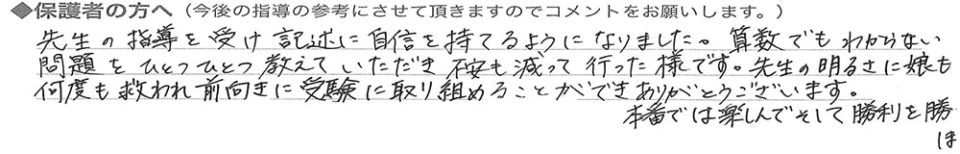 ◆保護者の方へ（今後の指導の参考にさせて頂きますのでコメントをお願いします。）
先生の指導を受け記述に自信を持てるようになりました。算数でもわからない
問題をひとつひとつ教えていただき不安も減って行った様です。先生の明るさに娘も
何度も救われ前向きに受験に取り組めることができありがとうございます。
本番では楽しんでそして勝利を勝
ほ